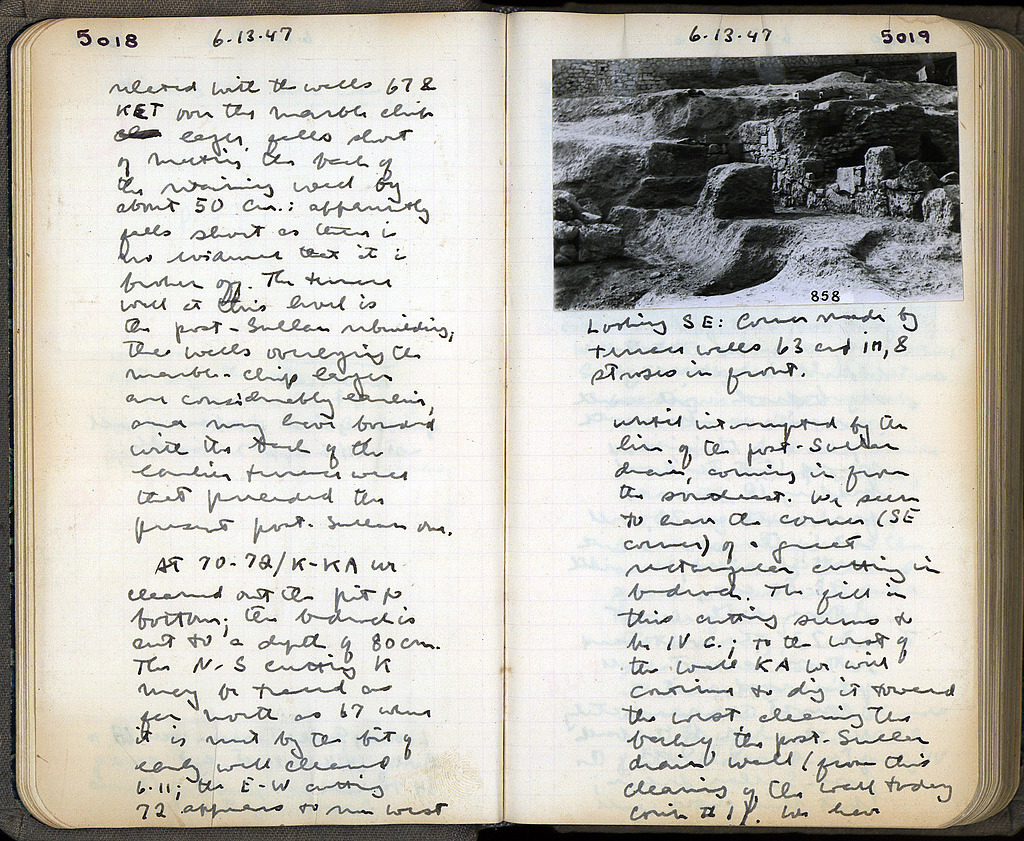 5018 6-13-47
with the walls 67 &
KET over the marble chip
layer, falls short
of meeting the back of
the retaining wall by
about 50 cm.: apparently
falls short as there is
no evidence that it is
broken off. The terrace
wall at this level is
the post-Sullan rebuilding;
the walls overlying the
marble-chip layer
are considerably earlier,
and may have bonded
with the back of the
earlier terrace wall
that preceded the
present post-Sullan one.
At 70-72/K-KA we
cleaned out the pit to
bottom; the bedrock is
cut to a depth of 80 cm.
The N-S cutting K
may be traced as
far north as 67 where
it is met by the bit of
early wall cleaned
6.11; the E-W cutting
72 appears to run west
6-13-47 5019
858
Looking SE: Corner made by
terrace walls 63 and 8
in front.
until interrupted by the
line of the post-Sullan
drain, coming in from
the southeast. We seem
to have the corner (SE
corner) of a great
rectangular cutting in
bedrock. The fill in
this cutting seems to
be IV C.; to the west of
the wall KA we will
continue to dig it toward
the west cleaning the
back of the post-Sullan
drain wall (from this
cleaning of the wall today
coin # 1). We have